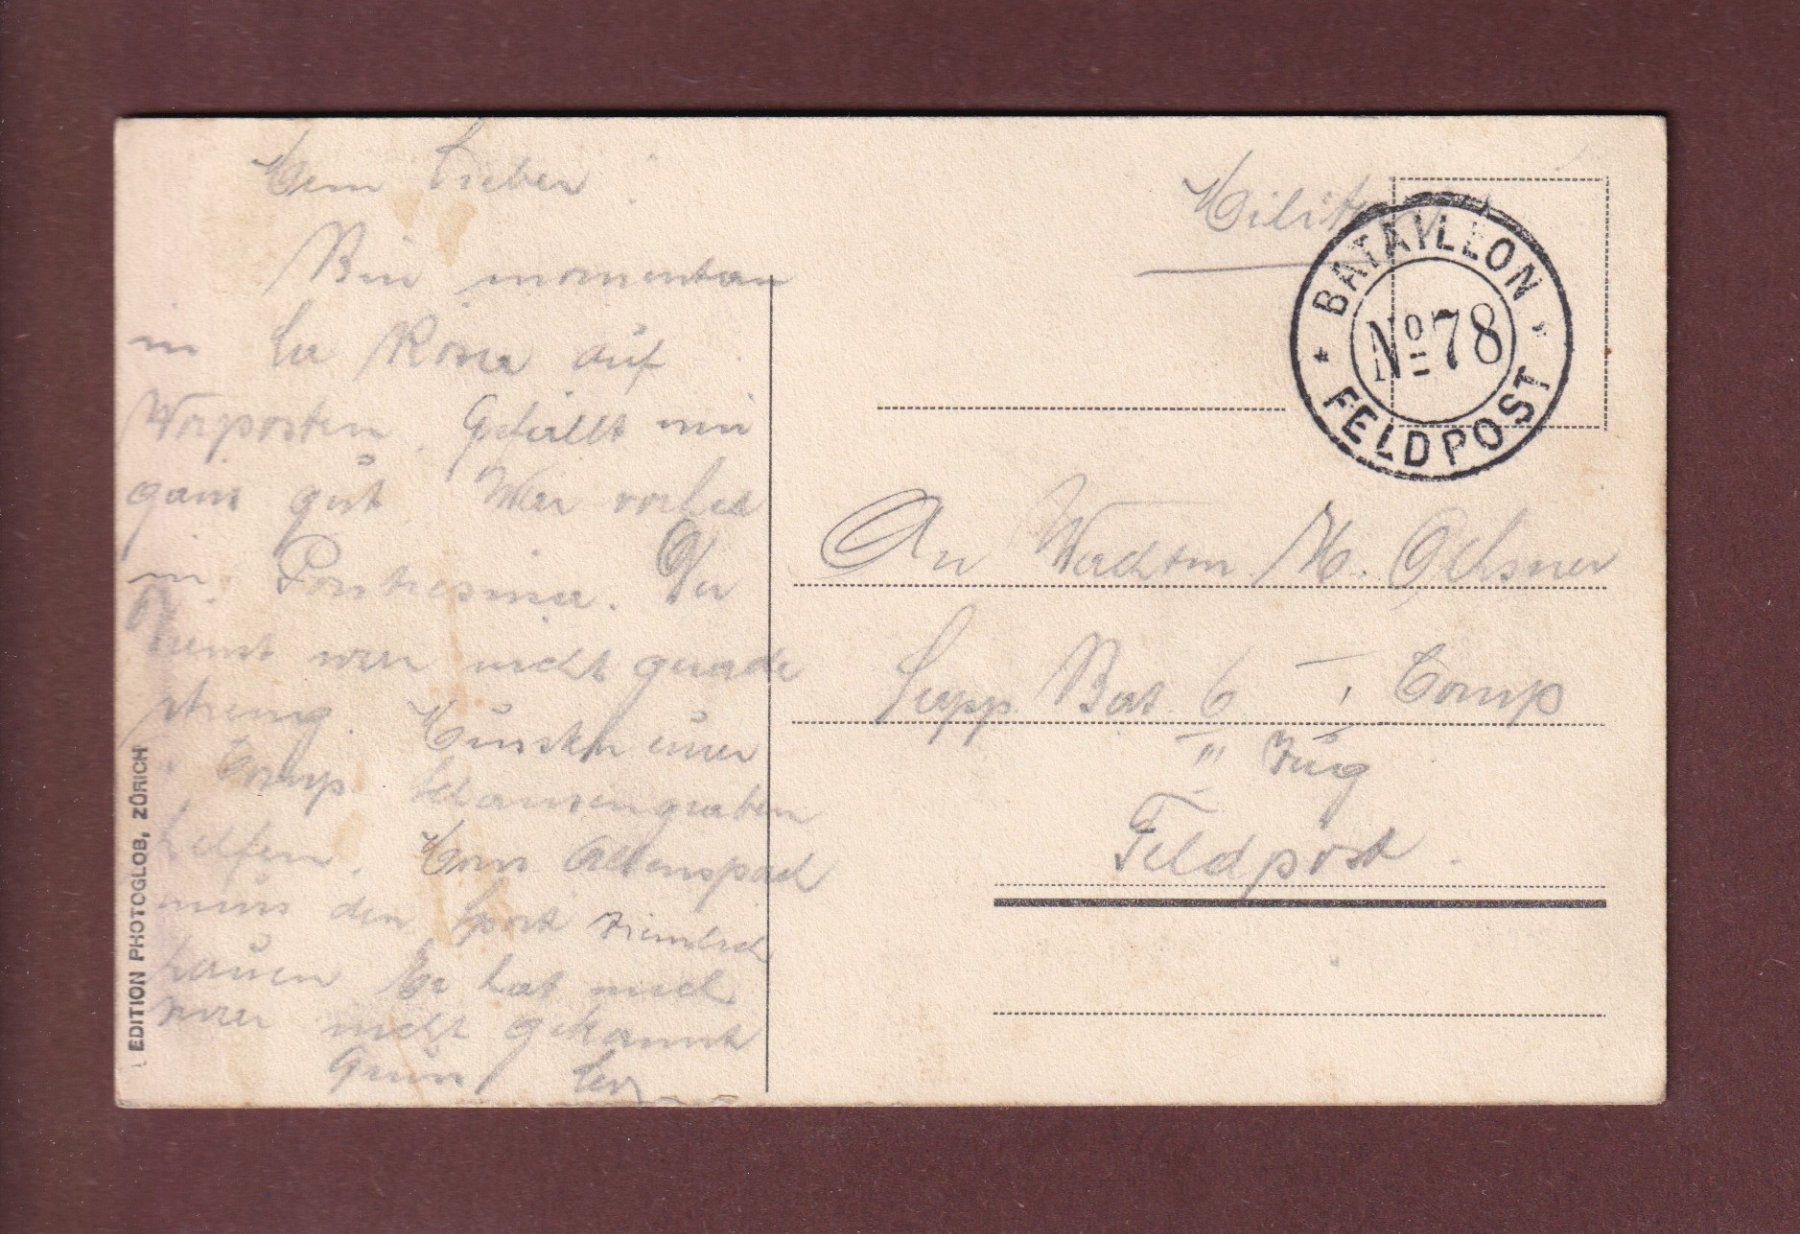 Mein Lieber
Bin momentan
in La Rosa auf
Vorposten. Gefällt mir
ganz gut. War vorher
in Pontresina. Der
Dienst war nicht gerade
streng. Mussten einer
Comp. Schanzengraben
helfen. Altenspach
muss den Sport ziemlich
hauen Er hat mich
zwar nicht gekannt
Gruss
EDITION PHOTOGLOB, ZÜRICH
Militär
BATAILLON
No 78
FELDPOST
An Wachtm. M. Ochsner
Sapp. Bat. 6 I. Comp
III Zug
Feldpost.